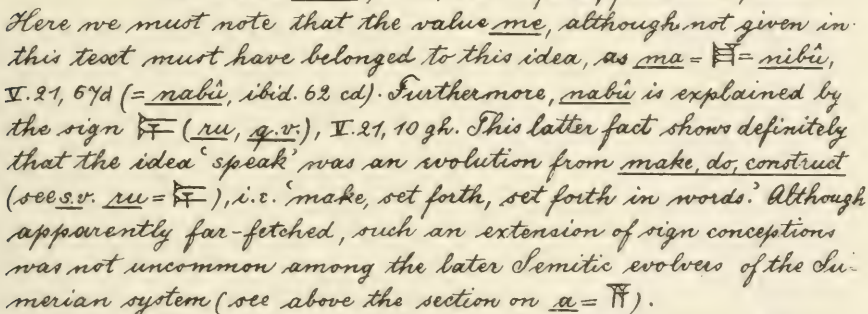 Here we must note that the value me, although not given in
this text must have belonged to this idea, as ma = 𒈠 = nibû,
V.21, 67d (= nabû, ibid. 62 cd). Furthermore, nabû is explained by
the sign (ru, q.v.), V.21, 10 gh. This latter fact shows definitely
that the idea 'speak' was an evolution from make, do, construct
(see s.v. ru = ), i.e. 'make, set forth, set forth in words.' Although
apparently far-fetched, such an extension of sign conceptions
was not uncommon among the later Semitic evolvers of the Su-
merian system (see above the section on a = 𒀀).